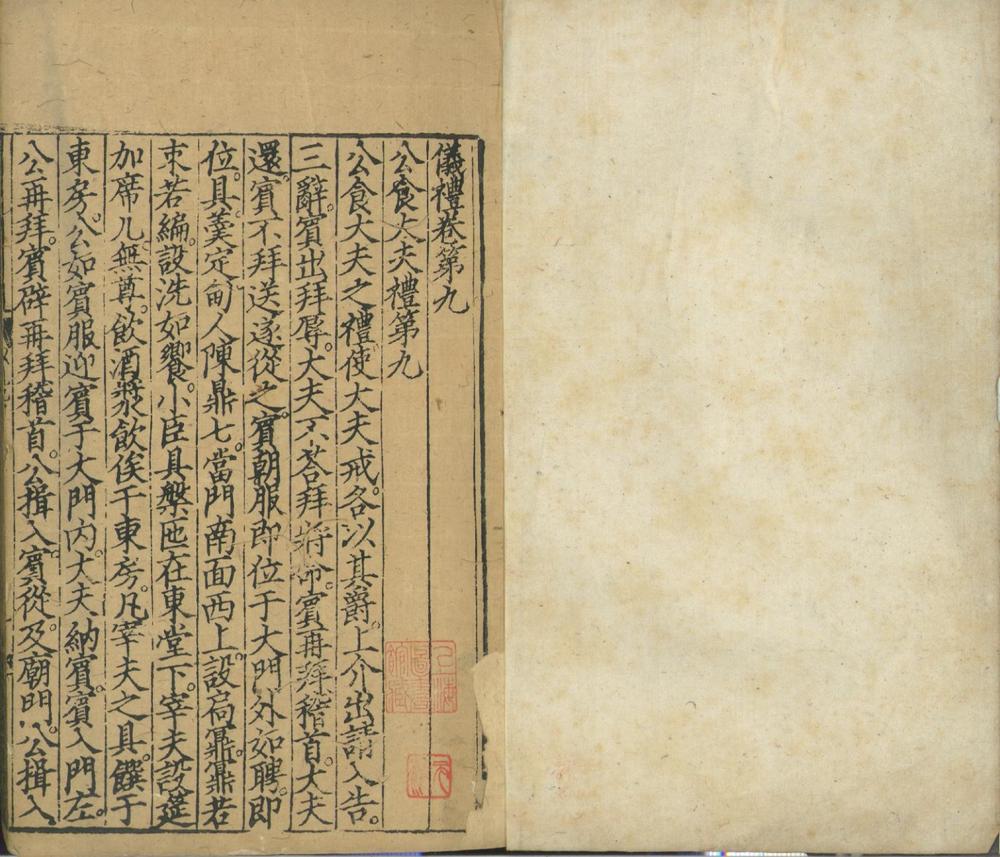 儀禮卷第九
公食大夫禮第九
公食大夫之禮使大夫戒。各以其爵。上介出請入告。
三辭賓出拜辱。大夫不荅拜將命。賓再拜稽首。大夫
還。賓不拜送遂從之。賓朝服即位于大門外如聘。即
位。具羹定甸人陳鼎七。當門南面西上。設扃鼏。鼏若
束若編。設洗如饗。小臣具槃匜在東堂下。宰夫設筵
加席几。無尊。飲酒漿飲俟于東房。凡宰夫之具。饌于
東房。公如賓服迎賓于大門內。大夫納賓。賓入門左。
公再拜。賓辟再拜稽首。公揖入賓從。及廟門。公揖入